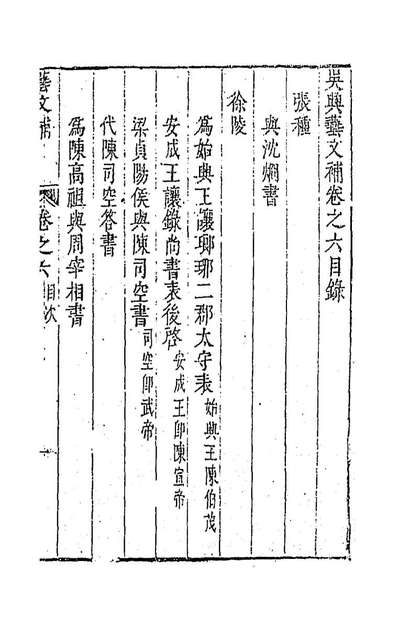 吳興藝文補卷之六目錄
張種
與沈炯書
徐陵
為始興王讓瑯琊二郡太守表始興王陳伯茂
安成王讓錄尚書表後啓安成王卽陳宣帝
梁貞陽侯與陳司空書司空卽武帝
代陳司空答書
爲陳高祖與周宰相書
藝文補 卷之六目次 一